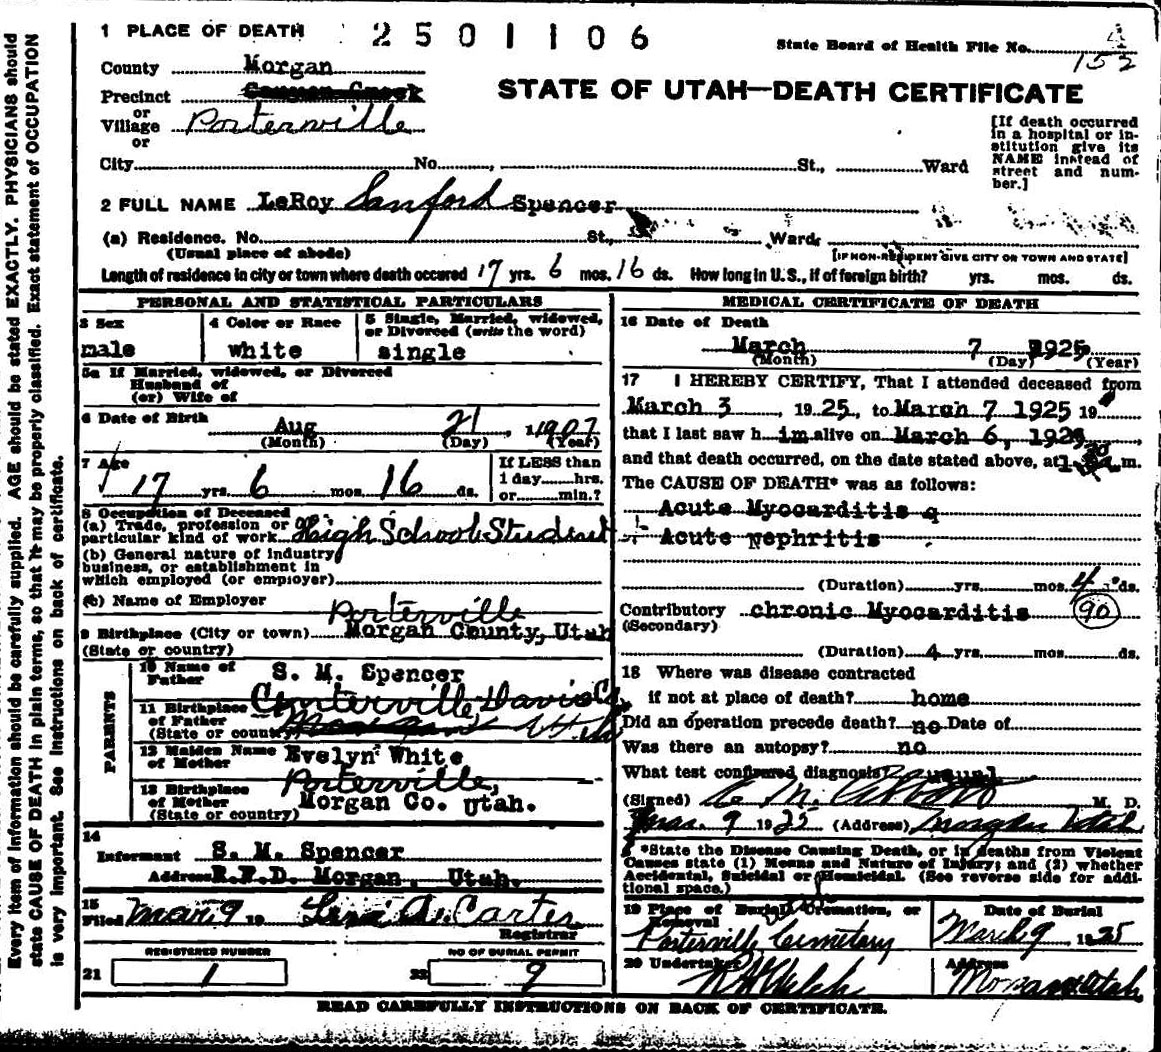 1 PLACE OF DEATH 2501106
State Board of Health File No.
4
152
County Morgan
Precinct Canyon Creek
or
Village Porterville
or
STATE OF UTAH—DEATH CERTIFICATE
[If death occurred in a hospital or institution give its NAME instead of street and number.]
City No. , St., Ward
2 FULL NAME LeRoy Sanford Spencer
(a) Residence. No. St., Ward.
(Usual place of abode) [IF NON-RESIDENT GIVE CITY OR TOWN AND STATE]
Length of residence in city or town where death occured 17 yrs. 6 mos. 16 ds. How long in U.S., if of foreign birth? yrs. mos. ds.
PERSONAL AND STATISTICAL PARTICULARS
3 Sex
male
4 Color or Race
white
5 Single, Married, widowed, or Divorced (write the word)
single
5a If Married, widowed, or Divorced
Husband of
(or) Wife of
6 Date of Birth Aug 21, 1907
(Month) (Day) (Year)
7 Age
17 yrs. 6 mos. 16 ds.
If LESS than
1 day hrs.
or min.?
8 Occupation of Deceased
(a) Trade, profession or
particular kind of work High School Student
(b) General nature of industry
business, or establishment in
which employed (or employer)
(c) Name of Employer
Porterville
9 Birthplace (City or town) Morgan County, Utah
(State or country)
PARENTS
10 Name of Father S. M. Spencer
11 Birthplace of Father Centerville Davis Co
(State or country) Utah
12 Maiden Name of Mother Evelyn White
Porterville,
13 Birthplace of Mother Morgan Co. Utah.
(State or country)
14
Informant S. M. Spencer
Address R.F.D. Morgan, Utah.
15
Filed Mar 9 19 Carter
Registrar
REGISTERED NUMBER
21 1
NO OF BURIAL PERMIT
22 9
MEDICAL CERTIFICATE OF DEATH
16 Date of Death
March 7 1925
(Month) (Day) (Year)
17 I HEREBY CERTIFY, That I attended deceased from
March 3, 1925, to March 7 1925 19
that I last saw h im alive on March 6, 1925,
and that death occurred, on the date stated above, at m.
The CAUSE OF DEATH* was as follows:
Acute Myocarditis
Acute nephritis
(Duration) yrs. mos. 4 ds.
Contributory chronic Myocarditis 90
(Secondary)
(Duration) 4 yrs. mos. ds.
18 Where was disease contracted
if not at place of death? home
Did an operation precede death? no Date of
Was there an autopsy? no
What test confirmed diagnosis? usual
(Signed) M. D.
Mar. 9 1925 (Address) Morgan Utah
*State the Disease Causing Death, or in deaths from Violent
Causes state (1) Means and Nature of Injury; and (2) whether
Accidental, Suicidal or Homicidal. (See reverse side for additional space.)
19 Place of Burial, Cremation, or Removal
Porterville Cemetary
Date of Burial
March 9 1925
20 Undertaker
Address
Morgan Utah
READ CAREFULLY INSTRUCTIONS ON BACK OF CERTIFICATE.
Every item of Information should be carefully supplied. AGE should be stated EXACTLY. PHYSICIANS should
state CAUSE OF DEATH in plain terms, so that it may be properly classified. Exact statement of OCCUPATION
is very important. See instructions on back of certificate.